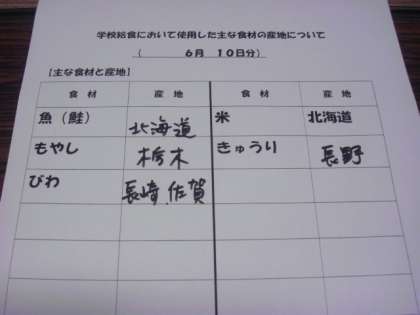 学校給食において使用した主な食材の産地について
（　　　６月　１０日分）
【主な食材と産地】
食　材　産　地　食　材　産　地
魚（鮭）　北海道　米　北海道
もやし　栃木　きゅうり　長野
びわ　長崎 佐賀